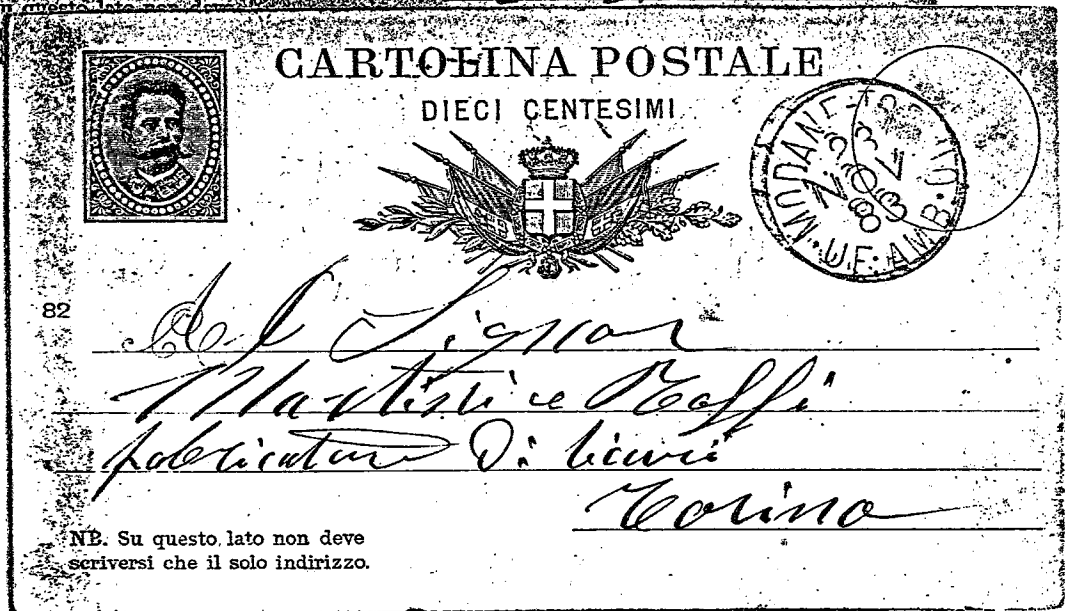 CARTOLINA POSTALE
DIECI CENTESIMI
MODANE-TORINO
23
UF. AMB.
82
Al Signor
Martini e Rossi
fabricatore Di
Torino
NB. Su questo lato non deve
scriversi che il solo indirizzo.